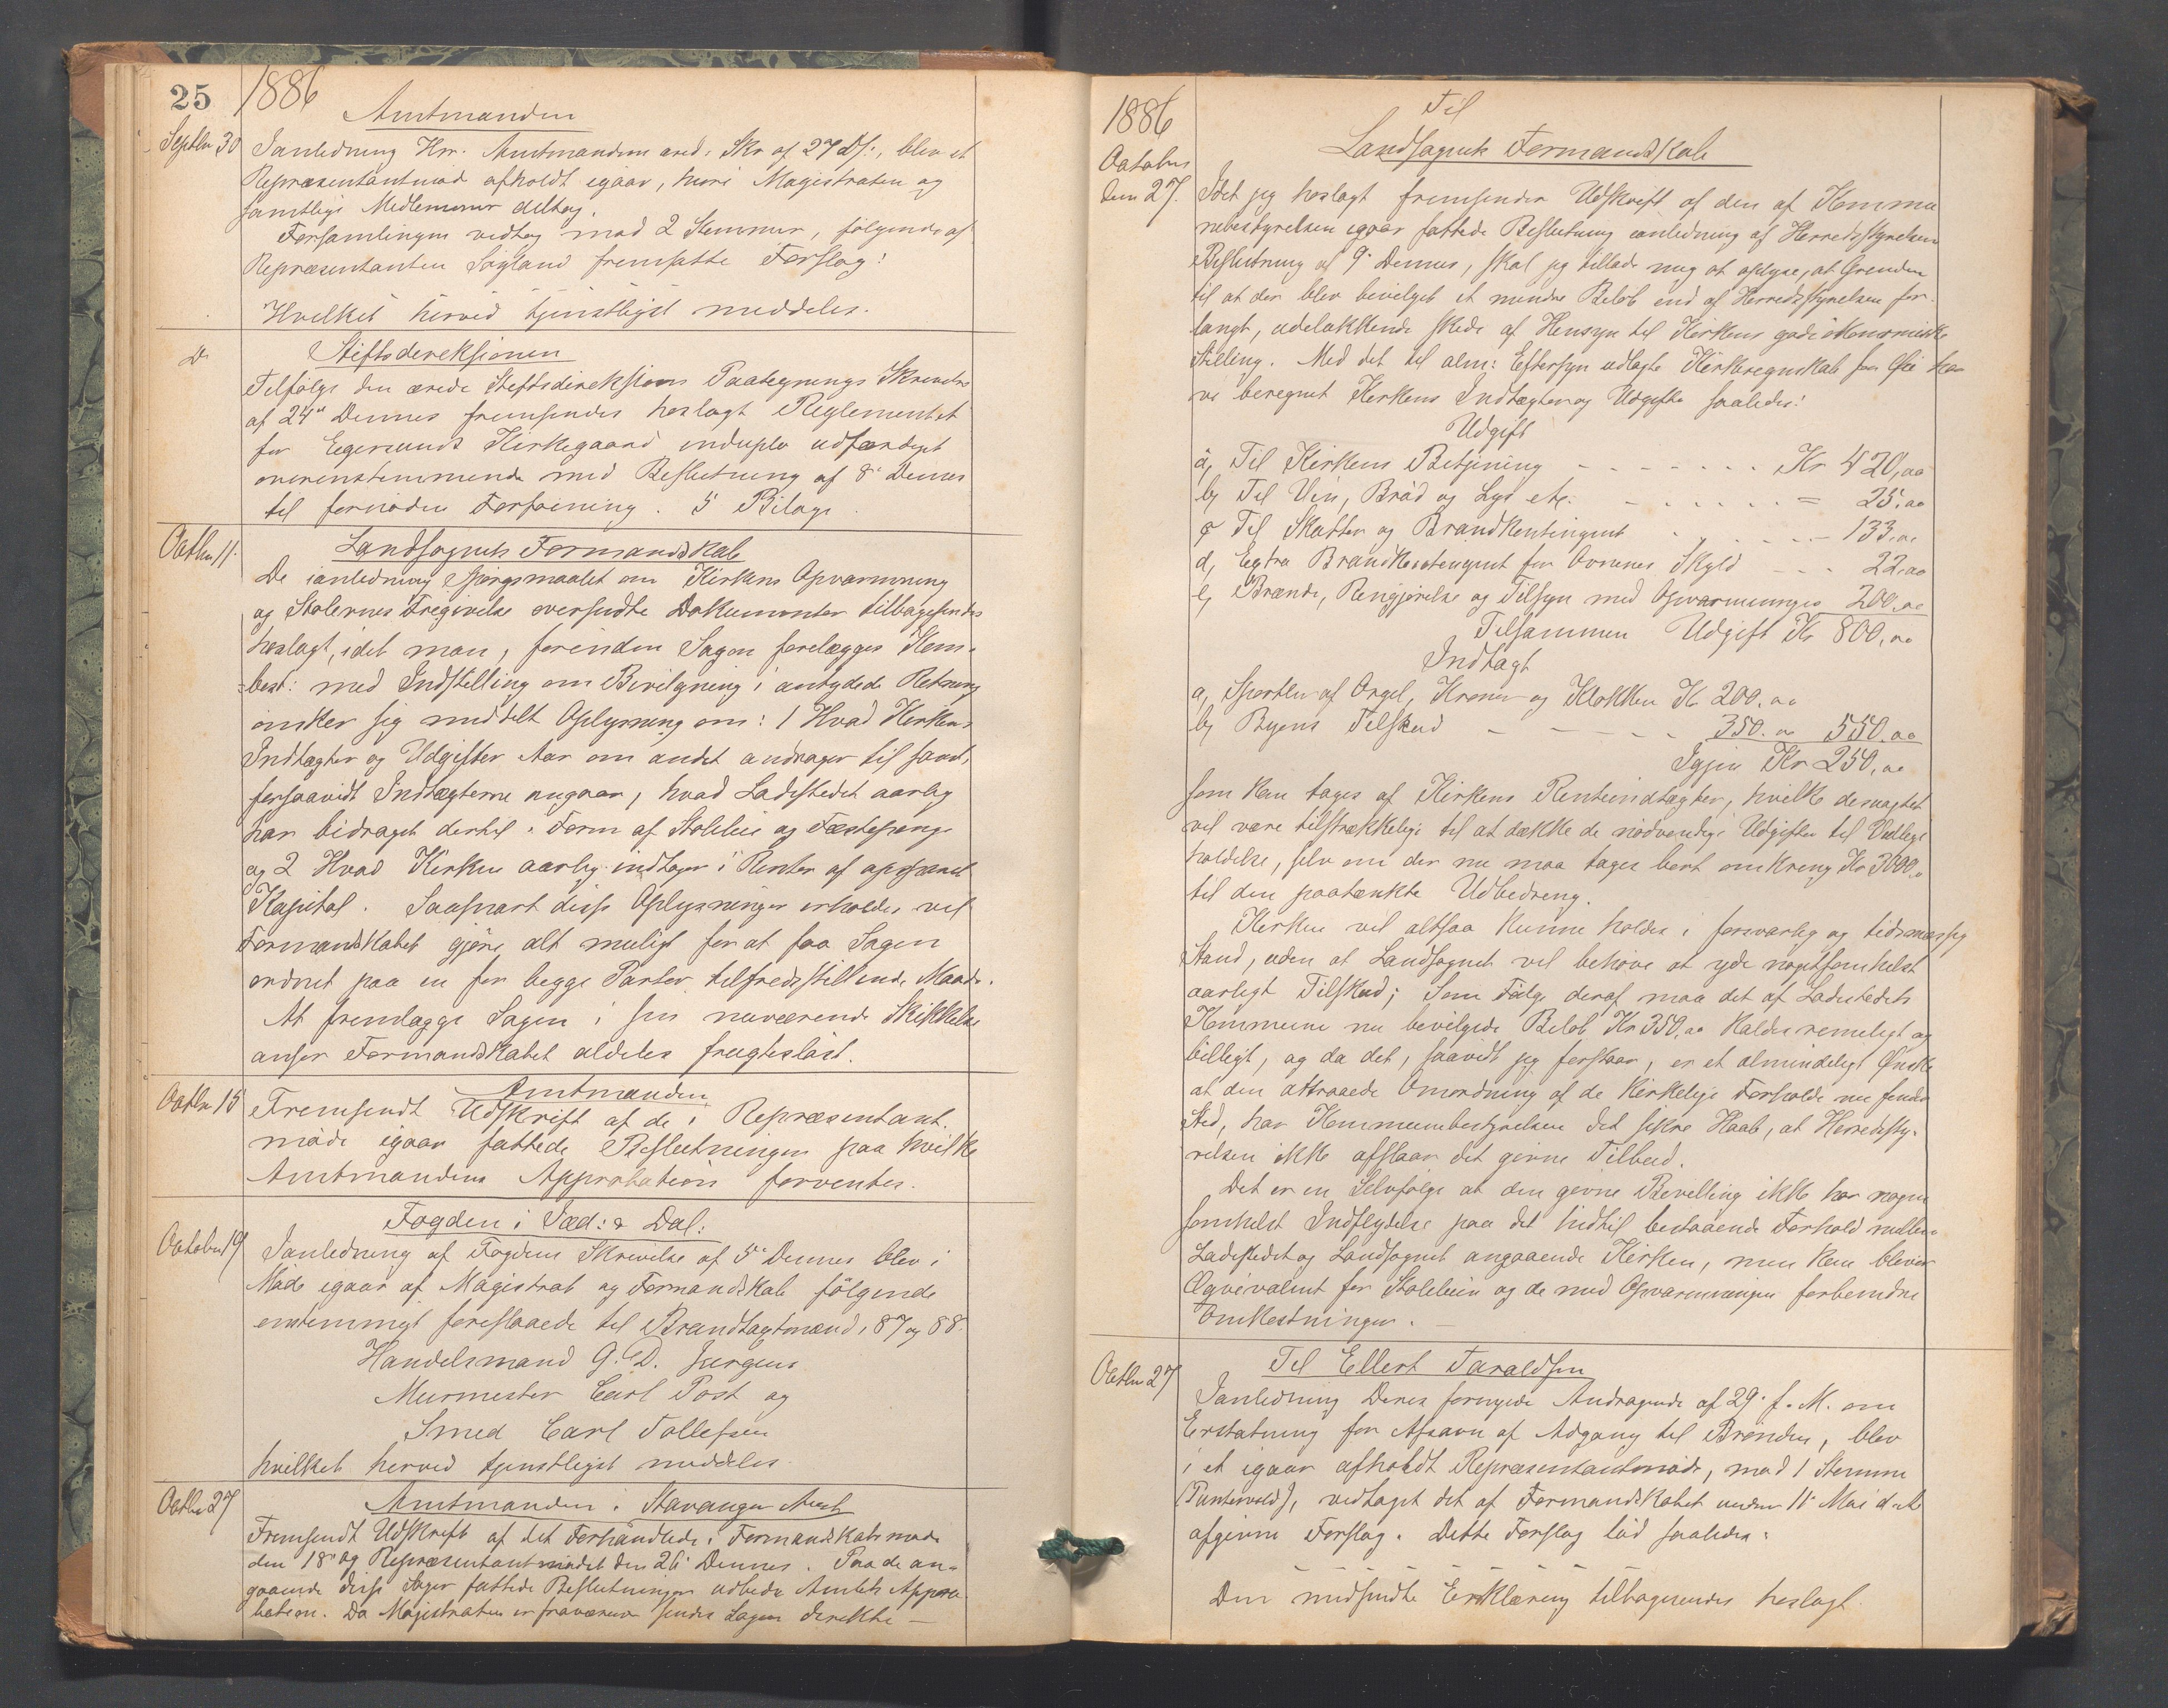 25 1886
Amtmanden
Septbr 30 Ianledning Hrr. Amtmandens ared. Skr af 27 ds:, blev et
Repræsentantmød afholdt igaar, hvori Magistraten og
samtlige Medlemmer deltog.
Forsamlingen vedtog mod 2 Stemmer, følgende af
Repræsentanten Søyland fremsatte Forslag:
Hvilket herved tjenstligst meddeles.
Do Stiftsdireksionen
Tilfølge den ærede Stiftsdireksions Paategnings Skrivelse
af 24de Dennes fremsendes hoslagt Reglementet
for Egersunds Kirkegaard induplo udfærdiget
overenstemmende med Beslutning af 8de Dennes
til fornøden Forføining. 5 Bilage.
Octbr 11. Landsognets Formandskab
De ianledning Spørgsmaalet om Kirkens Opvarmning
og Stolernes Fregivelse oversendte Dokumenter tilbagesendes
hoslagt, idet man, forinden Sagen forelægges Kom-
best: med Indstilling om Bevilgning i antydede Retning
ønsker sig meddelt Oplysning om: 1 Hvad Kirkens
Indtægter og Udgifter Aar om andet andrager til samt,
forsaavidt Indtægterne angaar, hvad Ladestedet aarlig
har bidraget dertil i Form af Stoleleie og Fæstepenge
og 2 Hvad Kirken aarlig indtager i Renter af opspart
Kapital. Saasnart disse Oplysninger erholdes, vil
Formandskabet gjøre alt muligt for at faa Sagen
ordnet paa en for begge Parter tilfredsstillende Maade.
At fremlægge Sagen i sin nuværende Skikkelse
anser Formandskabet aldeles frugtesløst.
Octbr 15 Amtmanden
Fremsendt Udskrift af de i Repræsentant-
møde igaar fattede Beslutninger paa hvilke
Amtmandens Approbation forventes.
Fogden i Jæd: & Dal:
October 19 Ianledning af Fogdens Skrivelse af 5te Dennes blev i
Møde igaar af Magistrat og Formandskab følgende
enstemmigt foreslaaede til Brandtagtmænd i 87 og 88:
Handelsmand G. D. Jürgens
Murmester Carl Post og
Smed Carl Tollefsen
hvilket herved tjenstligst meddeles.
Octbr 27 Amtmanden i Stavanger Amt
Fremsendt Udskrift af det Forhandlede i Formandskabsmøde
den 18de og Repræsentantmødet den 26de Dennes. Paa de an-
gaaende disse Sager fattede Beslutninger udbedes Amtets Appro-
bation. Da Magistraten er fraværende sendes Sagen direkte —
1886
October
den 27.
Til
Landsognets Formandskab
Idet jeg hoslagt fremsender Udskrift af den af Kommu
nebestyrelsen igaar fattede Beslutning ianledning af Herredsstyrelsens
Beslutning af 9de Dennes, skal jeg tillade mig at oplyse, at Grunden
til at der blev bevilget et mindre Beløb end af Herredsstyrelsen for-
langt, udelukkende skede af Hensyn til Kirkens gode økonomiske
Stilling. Med det til alm: Eftersyn udlagte Kirkeregnskab for Øie har
vi beregnet Kirkens Indtægter og Udgifter saaledes:
Udgift
a, Til Kirkens Betjening - - - - - - - Kr 420,00
b, Til Vin, Brød og Lys etc. - - - - - - = 25,00
c, Til Skatter og Brandkontingent - - - - - 133,00
d, Extra Brandkontingent for Ovnenes Skyld - - - 22,00
e, Brænde, Rengjørelse og Tilsyn med Opvarmningen 200,00
Tilsammen Udgift Kr 800,00
Indtægt
a, Sportler af Orgel, Kroner og Klokken Kr 200.00
b, Byens Tilskud - - - - - 350.00 550.00
Igjen Kr 250,00
som kan tages af Kirkens Renteindtægter, hvilke desuagtet
vil være tilstrækkelige til at dække de nødvendige Udgifter til Vedlige
holdelse, selv om der nu maa tages bort omkring Kr 3000,
til den paatænkte Udbedring.
Kirken vil altsaa kunne holdes i forsvarlig og tidsmæssig
Stand, uden at Landsognet vil behøve at yde nogetsomhelst
aarligt Tilskud; Som Følge deraf maa det af Ladestedets
Kommune nu bevilgede Beløb Kr 350,00 kaldes rimeligt og
billigt, og da det, saavidt jeg forstaar, er et almindeligt Ønske
at den attraaede Omordning af de kirkelige Forholde nu finder
Sted, har Kommunebestyrelsen det sikre Haab, at Herredssty-
relsen ikke afslaar det givne Tilbud.
Det er en Selvfølge at den givne Bevilling ikke har nogen
somhelst Indflydelse paa det hidtil bestaaende Forhold mellem
Ladestedet og Landsognet angaaende Kirken, men kun bliver
Æqvivalent for Stoleleien og de med Opvarmningen forbundne
Omkostninger. —
Octbr 27 Til Ellert Taraldsen
Ianledning Deres fornyede Andragende af 29de f. M. om
Erstatning for Afsavn af Adgang til Brønden, blev
i et igaar afholdt Repræsentantmøde, mod 1 Stemme
(Puntervold), vedtaget det af Formandskabet under 11te Mai d. A
afgivne Forslag. Dette Forslag lød saaledes:
Den medsendte Erklæring tilbagesendes hoslagt.